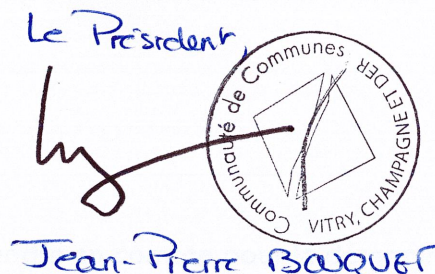 Le Président,
Communauté de Communes
VITRY, CHAMPAGNE ET DER
Jean-Pierre BOUQUET